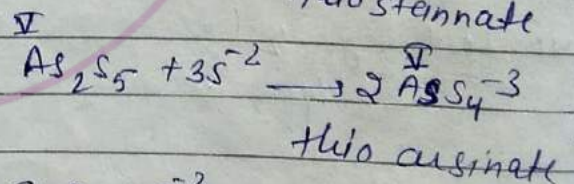 stannate
V V
As2S5 + 3S^-2 → 2 AsS4^-3
thio arsinate
-2